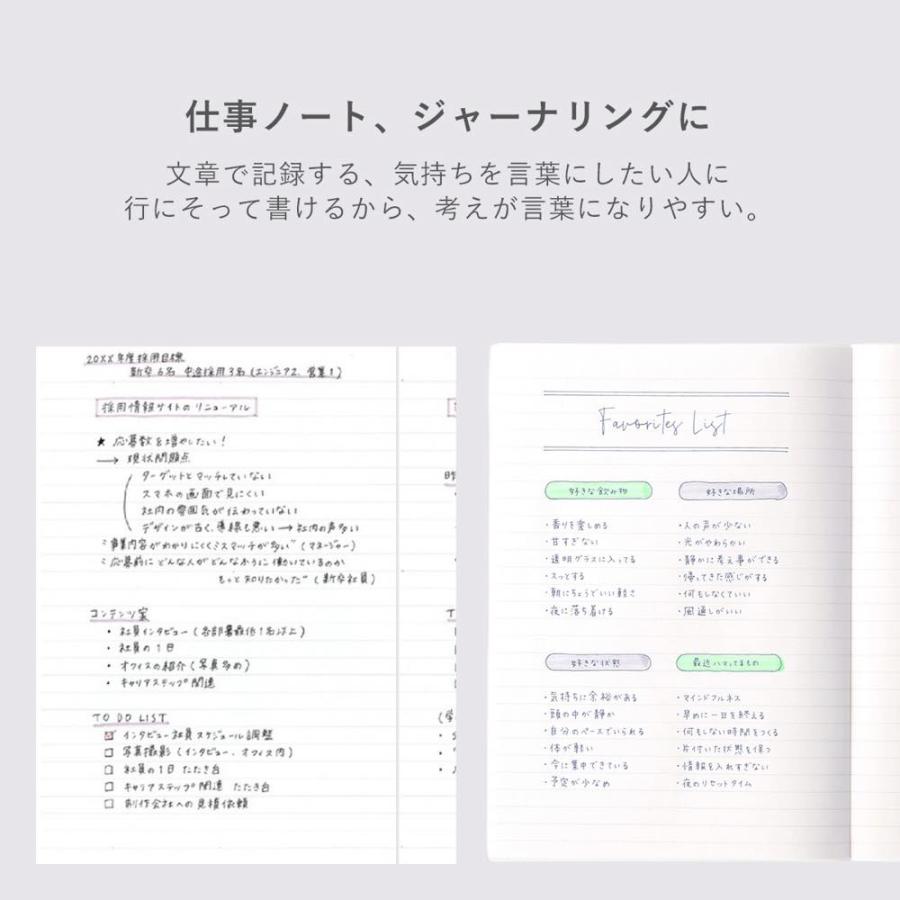 仕事ノート、ジャーナリングに
文章で記録する、気持ちを言葉にしたい人に
行にそって書けるから、考えが言葉になりやすい。
20XX年度採用目標
新卒6名 中途採用3名(エンジニア2、営業1)
採用情報サイトのリニューアル
★ 応募数を増やしたい!
→ 現状問題点
ターゲットとマッチしていない
スマホの画面で見にくい
社内の雰囲気が伝わっていない
デザインが古く、導線も悪い→社内の声多い
"事業内容がわかりにくくミスマッチが多い"(マネージャー)
"応募前にどんな人がどんなふうに働いているのか
もっと知りたかった"(新卒社員)
コンテンツ案
・社員インタビュー(各部署最低1名以上)
・社員の1日
・オフィスの紹介(写真多め)
・キャリアステップ関連
TO DO LIST
☑ インタビュー社員スケジュール調整
□ 写真撮影(インタビュー、オフィス内)
□ 社員の1日 たたき台
□ キャリアステップ関連 たたき台
□ 制作会社への見積依頼
Favorites List
好きな飲み物
・香りを楽しめる
・甘すぎない
・透明グラスに入ってる
・スッとする
・朝にちょうどいい軽さ
・夜に落ち着ける
好きな場所
・人の声が少ない
・光がやわらかい
・静かに考え事ができる
・帰ってきた感じがする
・何もしなくていい
・風通しがいい
好きな状態
・気持ちに余裕がある
・頭の中が静か
・自分のペースでいられる
・体が軽い
・今に集中できている
・予定が少なめ
最近ハマってるもの
・マインドフルネス
・早めに一日を終える
・何もしない時間をつくる
・片付いた状態を保つ
・情報を入れすぎない
・夜のリセットタイム